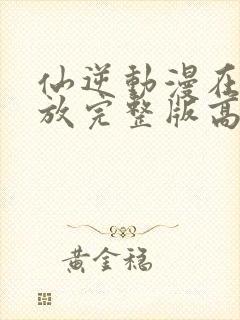 仙逆動漫在
放完整版高
黃金稳